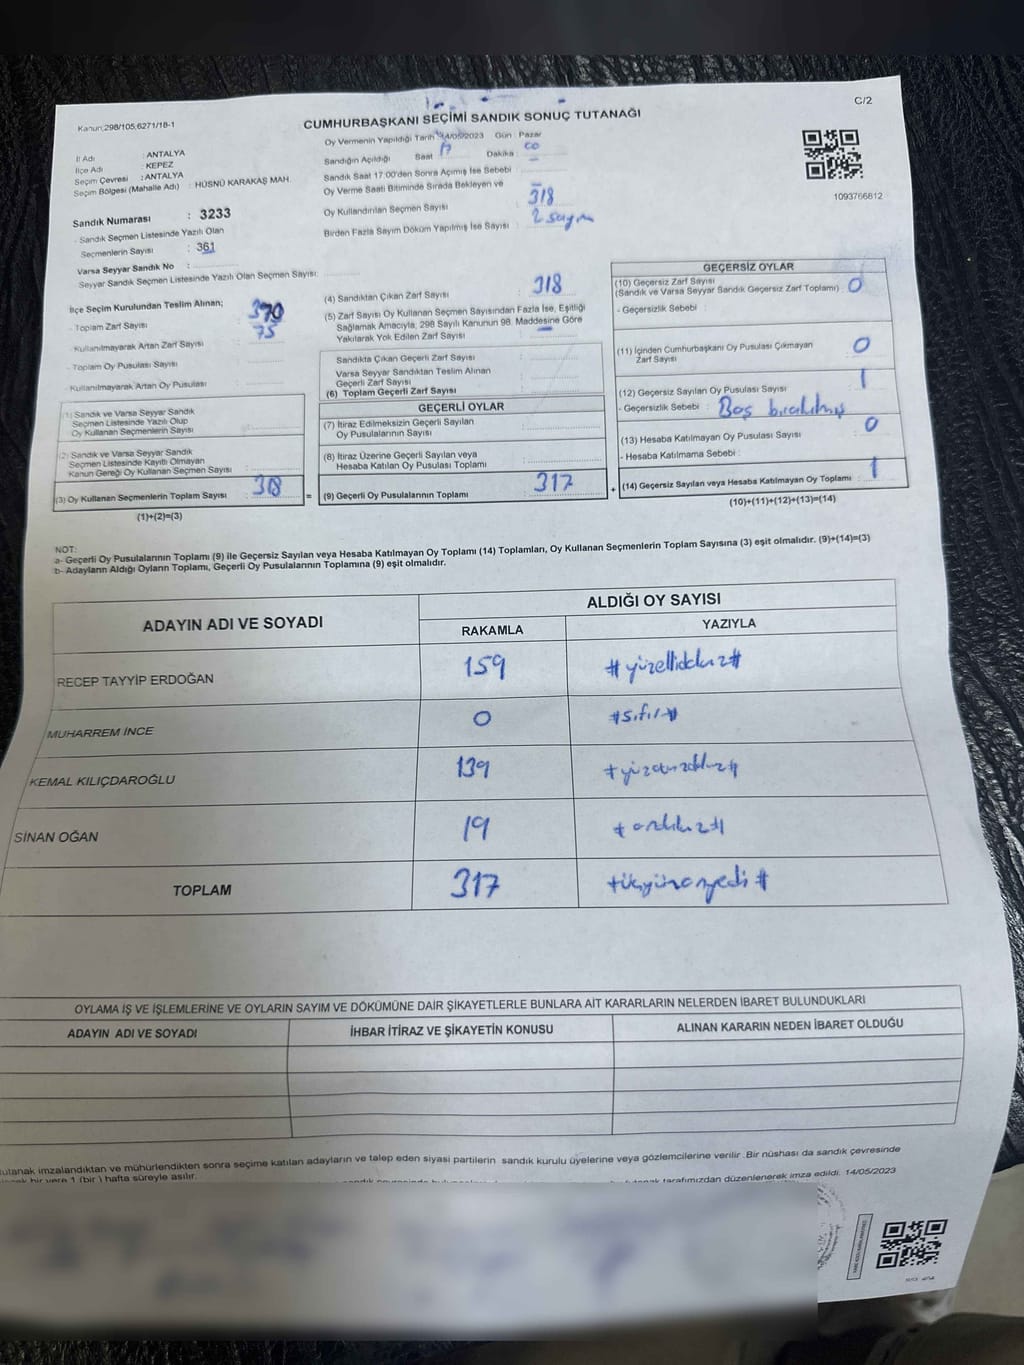 C/2
Kanun:298/105;6271/18-1
CUMHURBAŞKANI SEÇİMİ SANDIK SONUÇ TUTANAĞI
1093766812
İl Adı : ANTALYA
İlçe Adı : KEPEZ
Seçim Çevresi : ANTALYA
Seçim Bölgesi (Mahalle Adı) : HÜSNÜ KARAKAŞ MAH.
Sandık Numarası : 3233
- Sandık Seçmen Listesinde Yazılı Olan
Seçmenlerin Sayısı : 361
Varsa Seyyar Sandık No :
Seyyar Sandık Seçmen Listesinde Yazılı Olan Seçmen Sayısı:
Oy Vermenin Yapıldığı Tarih 14/05/2023 Gün : Pazar
Sandığın Açıldığı Saat 17 Dakika : 00
Sandık Saat 17:00'den Sonra Açımış İse Sebebi :
Oy Verme Saati Bitiminde Sırada Bekleyen ve
Oy Kullandırılan Seçmen Sayısı : 318
Birden Fazla Sayım Döküm Yapılmış İse Sayısı : 2 sayım
İlçe Seçim Kurulundan Teslim Alınan;
- Toplam Zarf Sayısı : 390
- Kullanılmayarak Artan Zarf Sayısı : 75
- Toplam Oy Pusulası Sayısı :
- Kullanılmayarak Artan Oy Pusulası :
(1) Sandık ve Varsa Seyyar Sandık
Seçmen Listesinde Yazılı Olup
Oy Kullanan Seçmenlerin Sayısı :
(2) Sandık ve Varsa Seyyar Sandık
Seçmen Listesinde Kayıtlı Olmayan
Kanun Gereği Oy Kullanan Seçmen Sayısı :
(3) Oy Kullanan Seçmenlerin Toplam Sayısı : 318 =
(1)+(2)=(3)
(4) Sandıktan Çıkan Zarf Sayısı : 318
(5) Zarf Sayısı Oy Kullanan Seçmen Sayısından Fazla İse, Eşitliği
Sağlamak Amacıyla, 298 Sayılı Kanunun 98. Maddesine Göre
Yakılarak Yok Edilen Zarf Sayısı :
Sandıkta Çıkan Geçerli Zarf Sayısı :
Varsa Seyyar Sandıktan Teslim Alınan
Geçerli Zarf Sayısı
(6) Toplam Geçerli Zarf Sayısı
GEÇERLİ OYLAR
(7) İtiraz Edilmeksizin Geçerli Sayılan
Oy Pusulalarının Sayısı
(8) İtiraz Üzerine Geçerli Sayılan veya
Hesaba Katılan Oy Pusulası Toplamı :
(9) Geçerli Oy Pusulalarının Toplamı : 317 +
GEÇERSİZ OYLAR
(10) Geçersiz Zarf Sayısı
(Sandık ve Varsa Seyyar Sandık Geçersiz Zarf Toplamı) : 0
- Geçersizlik Sebebi :
(11) İçinden Cumhurbaşkanı Oy Pusulası Çıkmayan
Zarf Sayısı : 0
(12) Geçersiz Sayılan Oy Pusulası Sayısı : 1
- Geçersizlik Sebebi : Boş bırakılmış
(13) Hesaba Katılmayan Oy Pusulası Sayısı : 0
- Hesaba Katılmama Sebebi :
(14) Geçersiz Sayılan veya Hesaba Katılmayan Oy Toplamı : 1
(10)+(11)+(12)+(13)=(14)
NOT:
a- Geçerli Oy Pusulalarının Toplamı (9) ile Geçersiz Sayılan veya Hesaba Katılmayan Oy Toplamı (14) Toplamları, Oy Kullanan Seçmenlerin Toplam Sayısına (3) eşit olmalıdır. (9)+(14)=(3)
b- Adayların Aldığı Oyların Toplamı, Geçerli Oy Pusulalarının Toplamına (9) eşit olmalıdır.
ADAYIN ADI VE SOYADI ALDIĞI OY SAYISI
RAKAMLA YAZIYLA
RECEP TAYYİP ERDOĞAN 159 #yüzellidokuz#
MUHARREM İNCE 0 #sıfır#
KEMAL KILIÇDAROĞLU 139 #yüzotuzdokuz#
SİNAN OĞAN 19 #ondokuz#
TOPLAM 317 #üçyüzonyedi#
OYLAMA İŞ VE İŞLEMLERİNE VE OYLARIN SAYIM VE DÖKÜMÜNE DAİR ŞİKAYETLERLE BUNLARA AİT KARARLARIN NELERDEN İBARET BULUNDUKLARI
ADAYIN ADI VE SOYADI İHBAR İTİRAZ VE ŞİKAYETİN KONUSU ALINAN KARARIN NEDEN İBARET OLDUĞU
tutanak imzalandıktan ve mühürlendikten sonra seçime katılan adayların ve talep eden siyasi partilerin sandık kurulu üyelerine veya gözlemcilerine verilir .Bir nüshası da sandık çevresinde
bir yere 1 (bir ) hafta süreyle asılır.
tarafımızdan düzenlenerek imza edildi. 14/05/2023